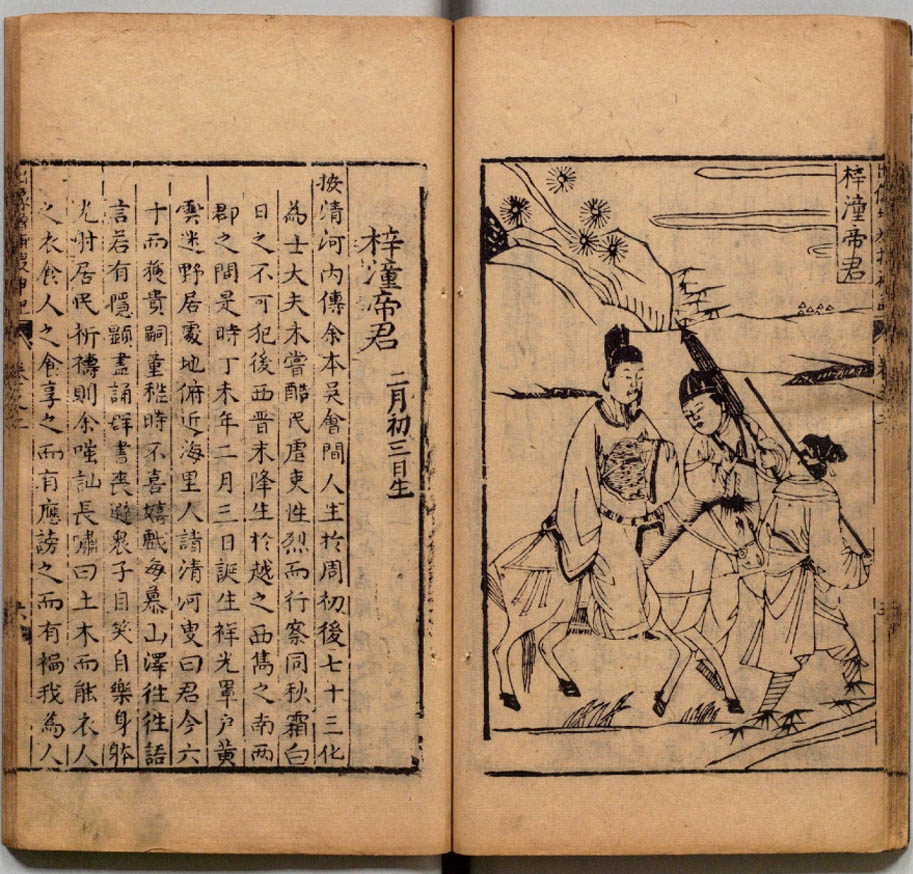 梓潼帝君
梓潼帝君　二月初三日生
按清河内傳余本吳會間人生於周初後七十三化
為士大夫未嘗酷民虐吏性烈而行察同秋霜白
日之不可犯後西晋末降生於越之西雋之南两
郡之間是時丁未年二月三日誕生祥光罩户黄
雲迷野居處地俯近海里人請清河叟曰君今六
十而獲貴嗣童稚時不喜嬉戯每慕山澤徃徃語
言若有隱顕晝誦群書夜避衆子自笑自樂身躰
光射居民祈禱則余嗤訕長嘯曰土木而能衣人
之衣食人之食享之而有應謗之而有禍我為人